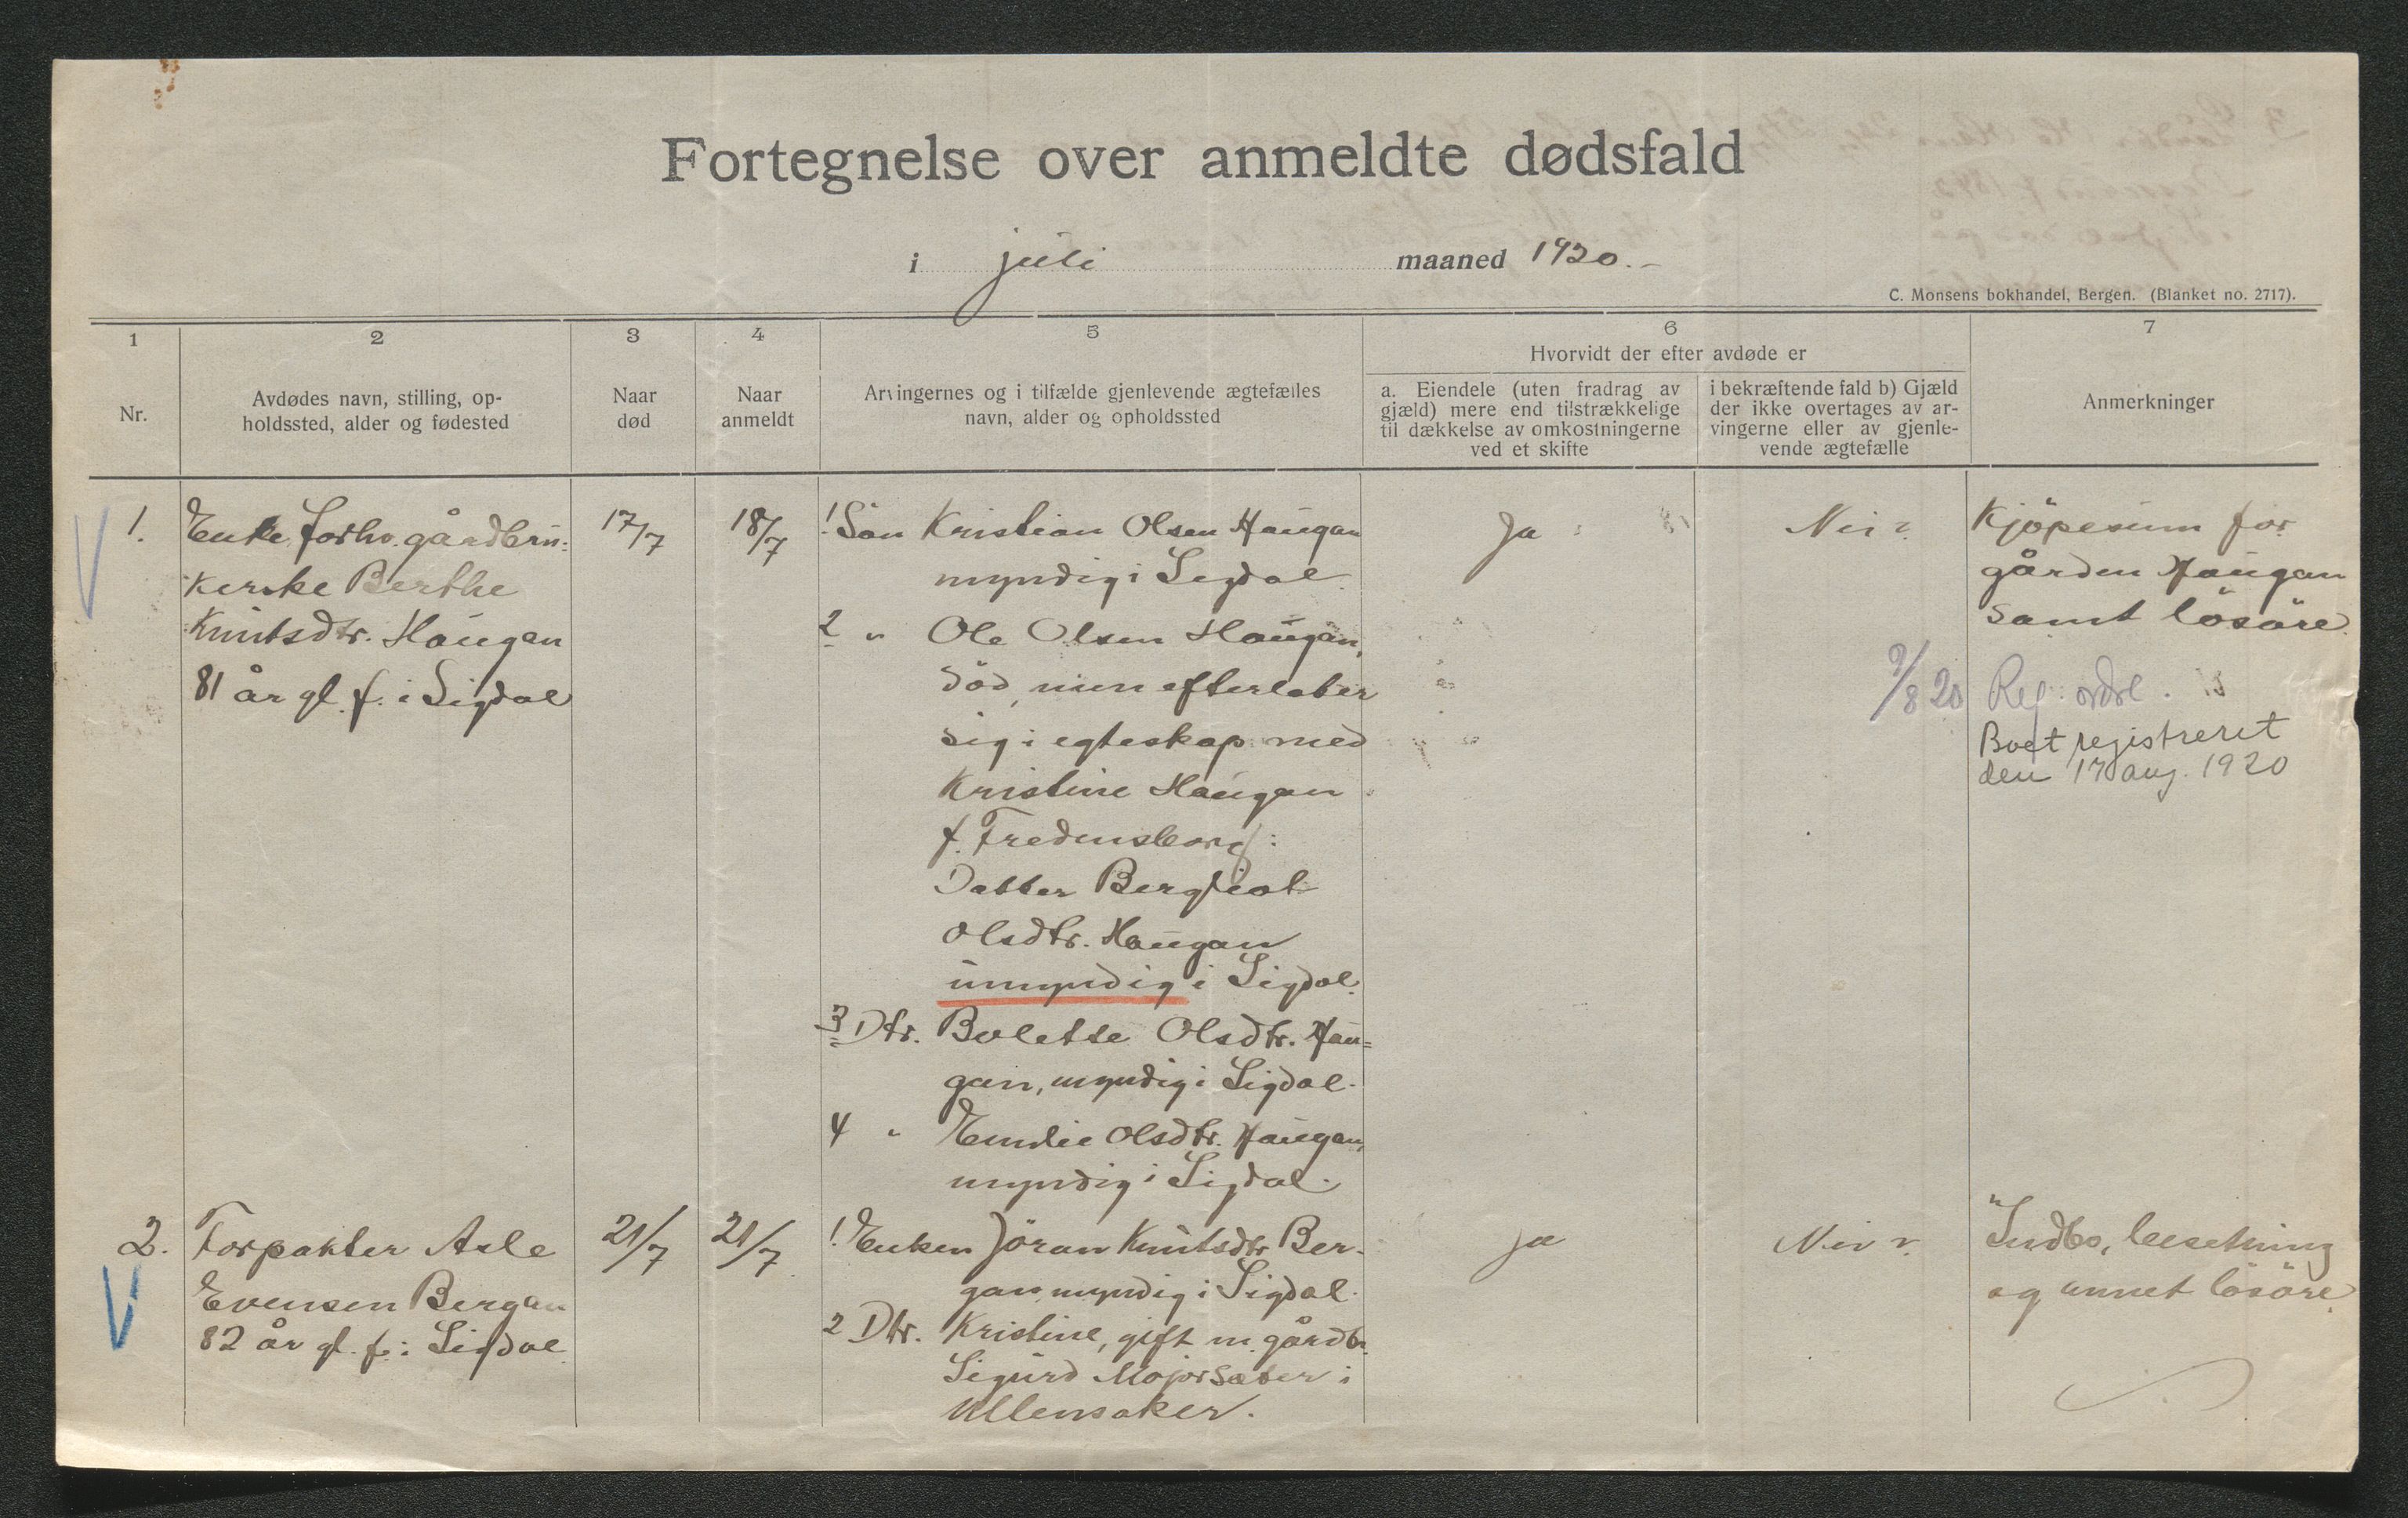 Fortegnelse over anmeldte dødsfald
i juli maaned 1920.-
C. Monsens bokhandel, Bergen. (Blanket no. 2717).
1
2
3
4
5
6
7
Nr.
Avdødes navn, stilling, op-
holdssted, alder og fødested
Naar
død
Naar
anmeldt
Arvingernes og i tilfælde gjenlevende ægtefælles
navn, alder og opholdssted
Hvorvidt der efter avdøde er
a. Eiendele (uten fradrag av
gjæld) mere end tilstrækkelige
til dækkelse av omkostningerne
ved et skifte
i bekræftende fald b) Gjæld
der ikke overtages av ar-
vingerne eller av gjenle-
vende ægtefælle
Anmerkninger
1.
Enke, forhv. gårdbru=
kerske Berthe
Knutsdtr. Haugan
81 år gl. f. i Sigdal
17/7
18/7
1 Sön Kristian Olsen Haugan
myndig i Sigdal
2 " Ole Olsen Haugan,
död, men efterlater
sig i egteskap med
Kristine Haugan
f. Fredensborg:
Datter Bergliot
Olsdtr. Haugan
umyndig i Sigdal.
3 Dtr. Bolette Olsdtr. Hau=
gan, myndig i Sigdal.
4 " Emilie Olsdtr. Haugan,
myndig i Sigdal.
Ja
Nei
Kjöpesum for
gården Haugan
samt lösöre.
9/8 20 Reg. ordre.
Boet registreret
den 17 aug. 1920
2.
Forpakter Asle
Evensen Bergan
82 år gl. f. i Sigdal
21/7
21/7
1. Enken Jöran Knutsdtr. Ber-
gan myndig i Sigdal.
2 Dtr. Kristine, gift m. gårdb.
Sigurd Majorsæter i
Ullensaker.
Ja
Nei
Indbo, besetning
og annet lösöre.